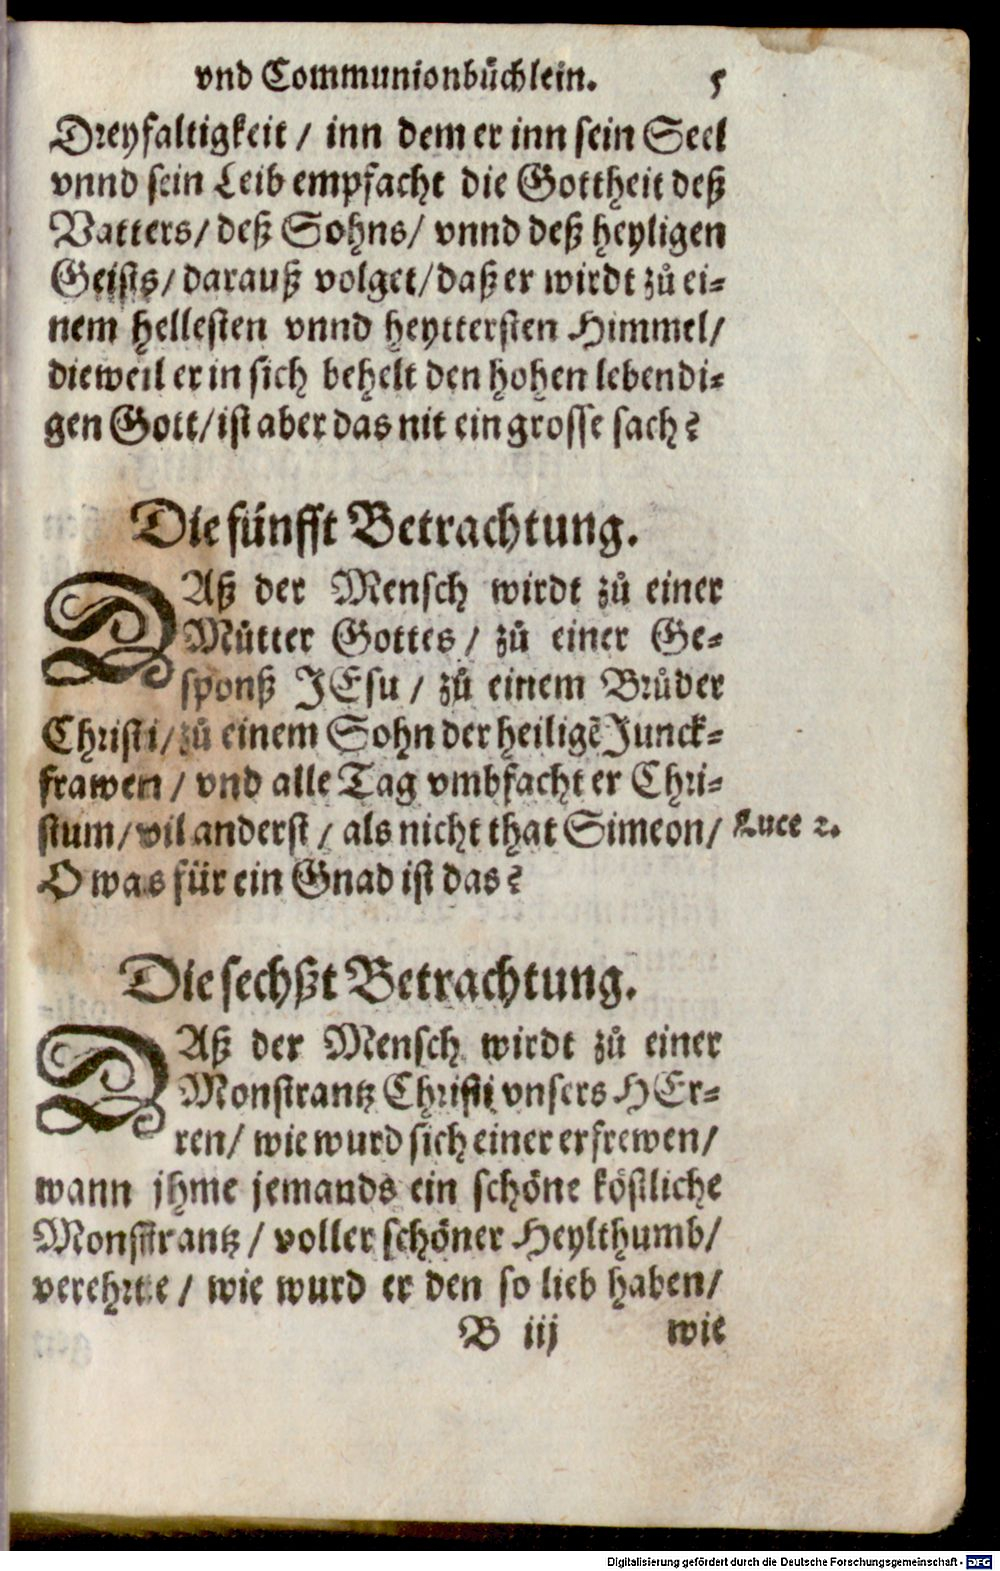 vnd Communionbůchlein. 5
Dreyfaltigkeit / inn dem er inn sein Seel
vnnd sein Leib empfacht die Gottheit deß
Vatters / deß Sohns / vnnd deß heyligen
Geists / darauß volget / daß er wirdt zů ei-
nem hellesten vnnd heyttersten Himmel /
dieweil er in sich behelt den hohen lebendi-
gen Gott / ist aber das nit ein grosse sach?
Die fünfft Betrachtung.
DAß der Mensch wirdt zů einer
Můtter Gottes / zů einer Ge-
sponß JEsu / zů einem Brůder
Christi / zů einem Sohn der heiligẽ Junck-
frawen / vnd alle Tag vmbfacht er Chri-
stum / vil anderst / als nicht that Simeon / Luce 2.
O was für ein Gnad ist das?
Die sechßt Betrachtung.
DAß der Mensch wirdt zů einer
Monstrantz Christi vnsers HEr-
ren / wie wurd sich einer erfrewen /
wann jhme jemands ein schöne köstliche
Monstrantz / voller schöner Heylthumb /
verehrte / wie wurd er den so lieb haben /
B iij wie
Digitalisierung gefördert durch die Deutsche Forschungsgemeinschaft - DFG